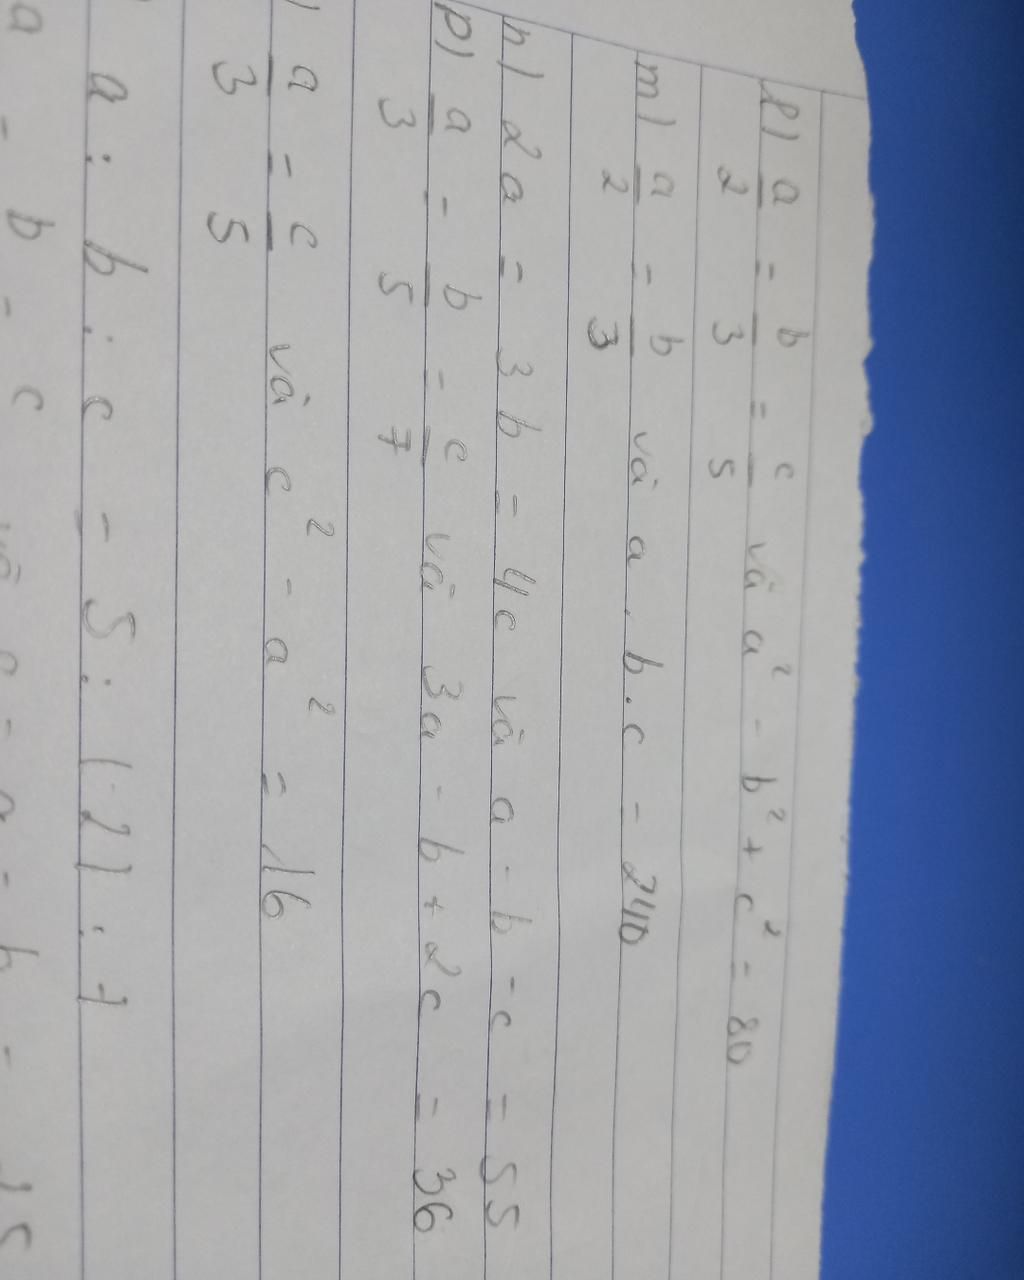 l) a/2 = b/3 = c/5 và a² - b² + c² = 80
m) a/2 = b/3 và a.b.c = 240
n) 2a = 3b = 4c và a - b - c = 55
p) a/3 = b/5 = c/7 và 3a - b + 2c = 36
) a/3 = c/5 và c² - a² = 16
a : b : c = 5 : (-2) :
a = b = c